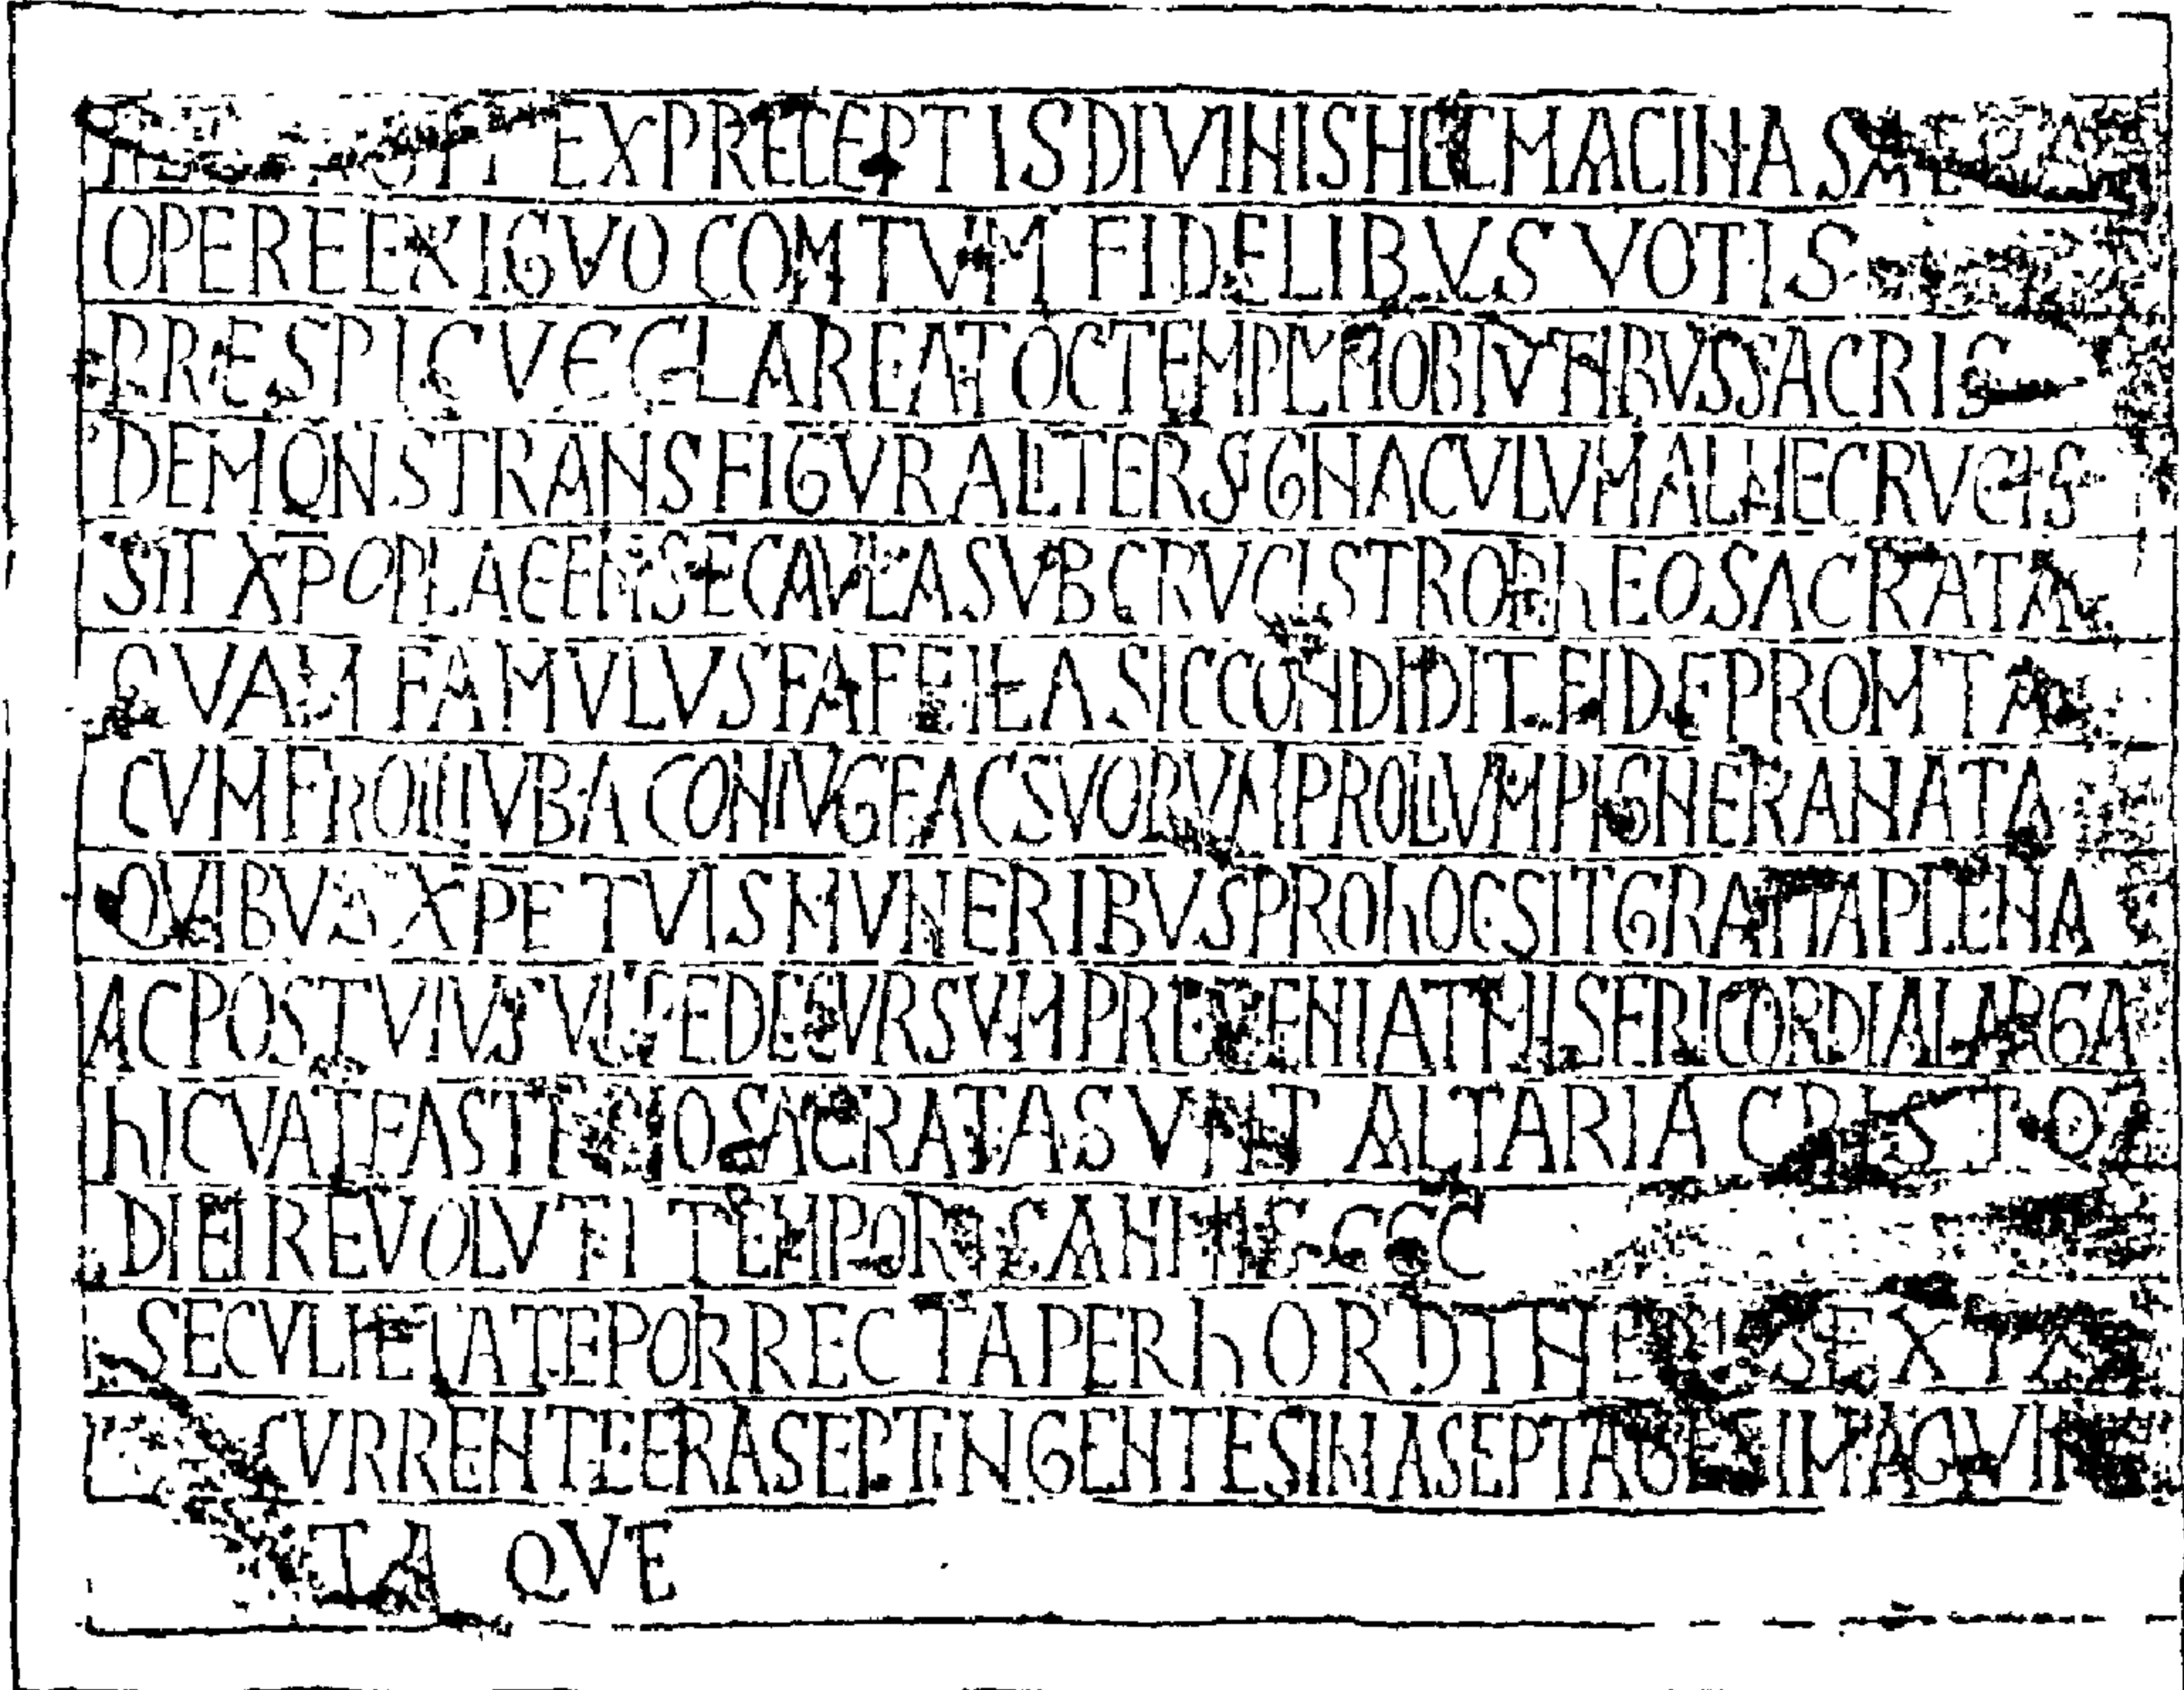 EX PRECEPTIS DIVINIS HEC MACINA SACRA
OPERE EXIGVO COMTVM FIDELIBVS VOTIS
PRESPICVE CLAREAT OC TEMPLVM OBTVTIBVS SACRIS
DEMONSTRANS FIGVRALITER SIGNACVLVM ALME CRVCIS
SIT XPO PLACENS EC AVLA SVB CRVCIS TROPHEO SACRATA
QVAM FAMVLVS FAFEILA SIC CONDIDIT FIDE PROMTA
CVM FROILIVBA CONIVGE AC SVORVM PROLIVM PIGNERA NATA
QVIBVS XPE TVIS MVNERIBVS PRO HOC SIT GRATIA PLENA
AC POST VIVS VITE DECVRSVM PREVENIAT MISERICORDIA LARGA
HIC VATE ASTERIO SACRATA SVNT ALTARIA CRISTO
DIEI REVOLVTI TEMPORIS ANNIS CCC
SECVLI ETATE PORRECTA PER HORDINEM SEXTA
CVRRENTE ERA SEPTINGENTESIMA SEPTAGESIMA QVIN
TAQVE